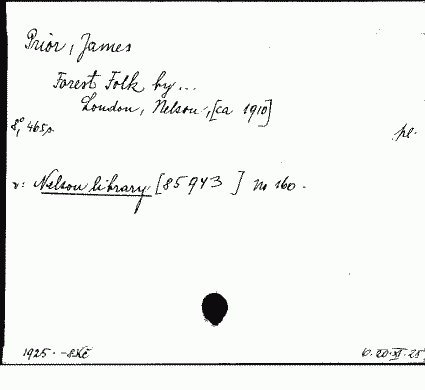 Prior, James
Forest Folk by ...
London, Nelson, [ca 1910]
8°, 465 p. pl.
v: Nelson library [85943] no 160.
1925. -8Kč 6.20.XI.25